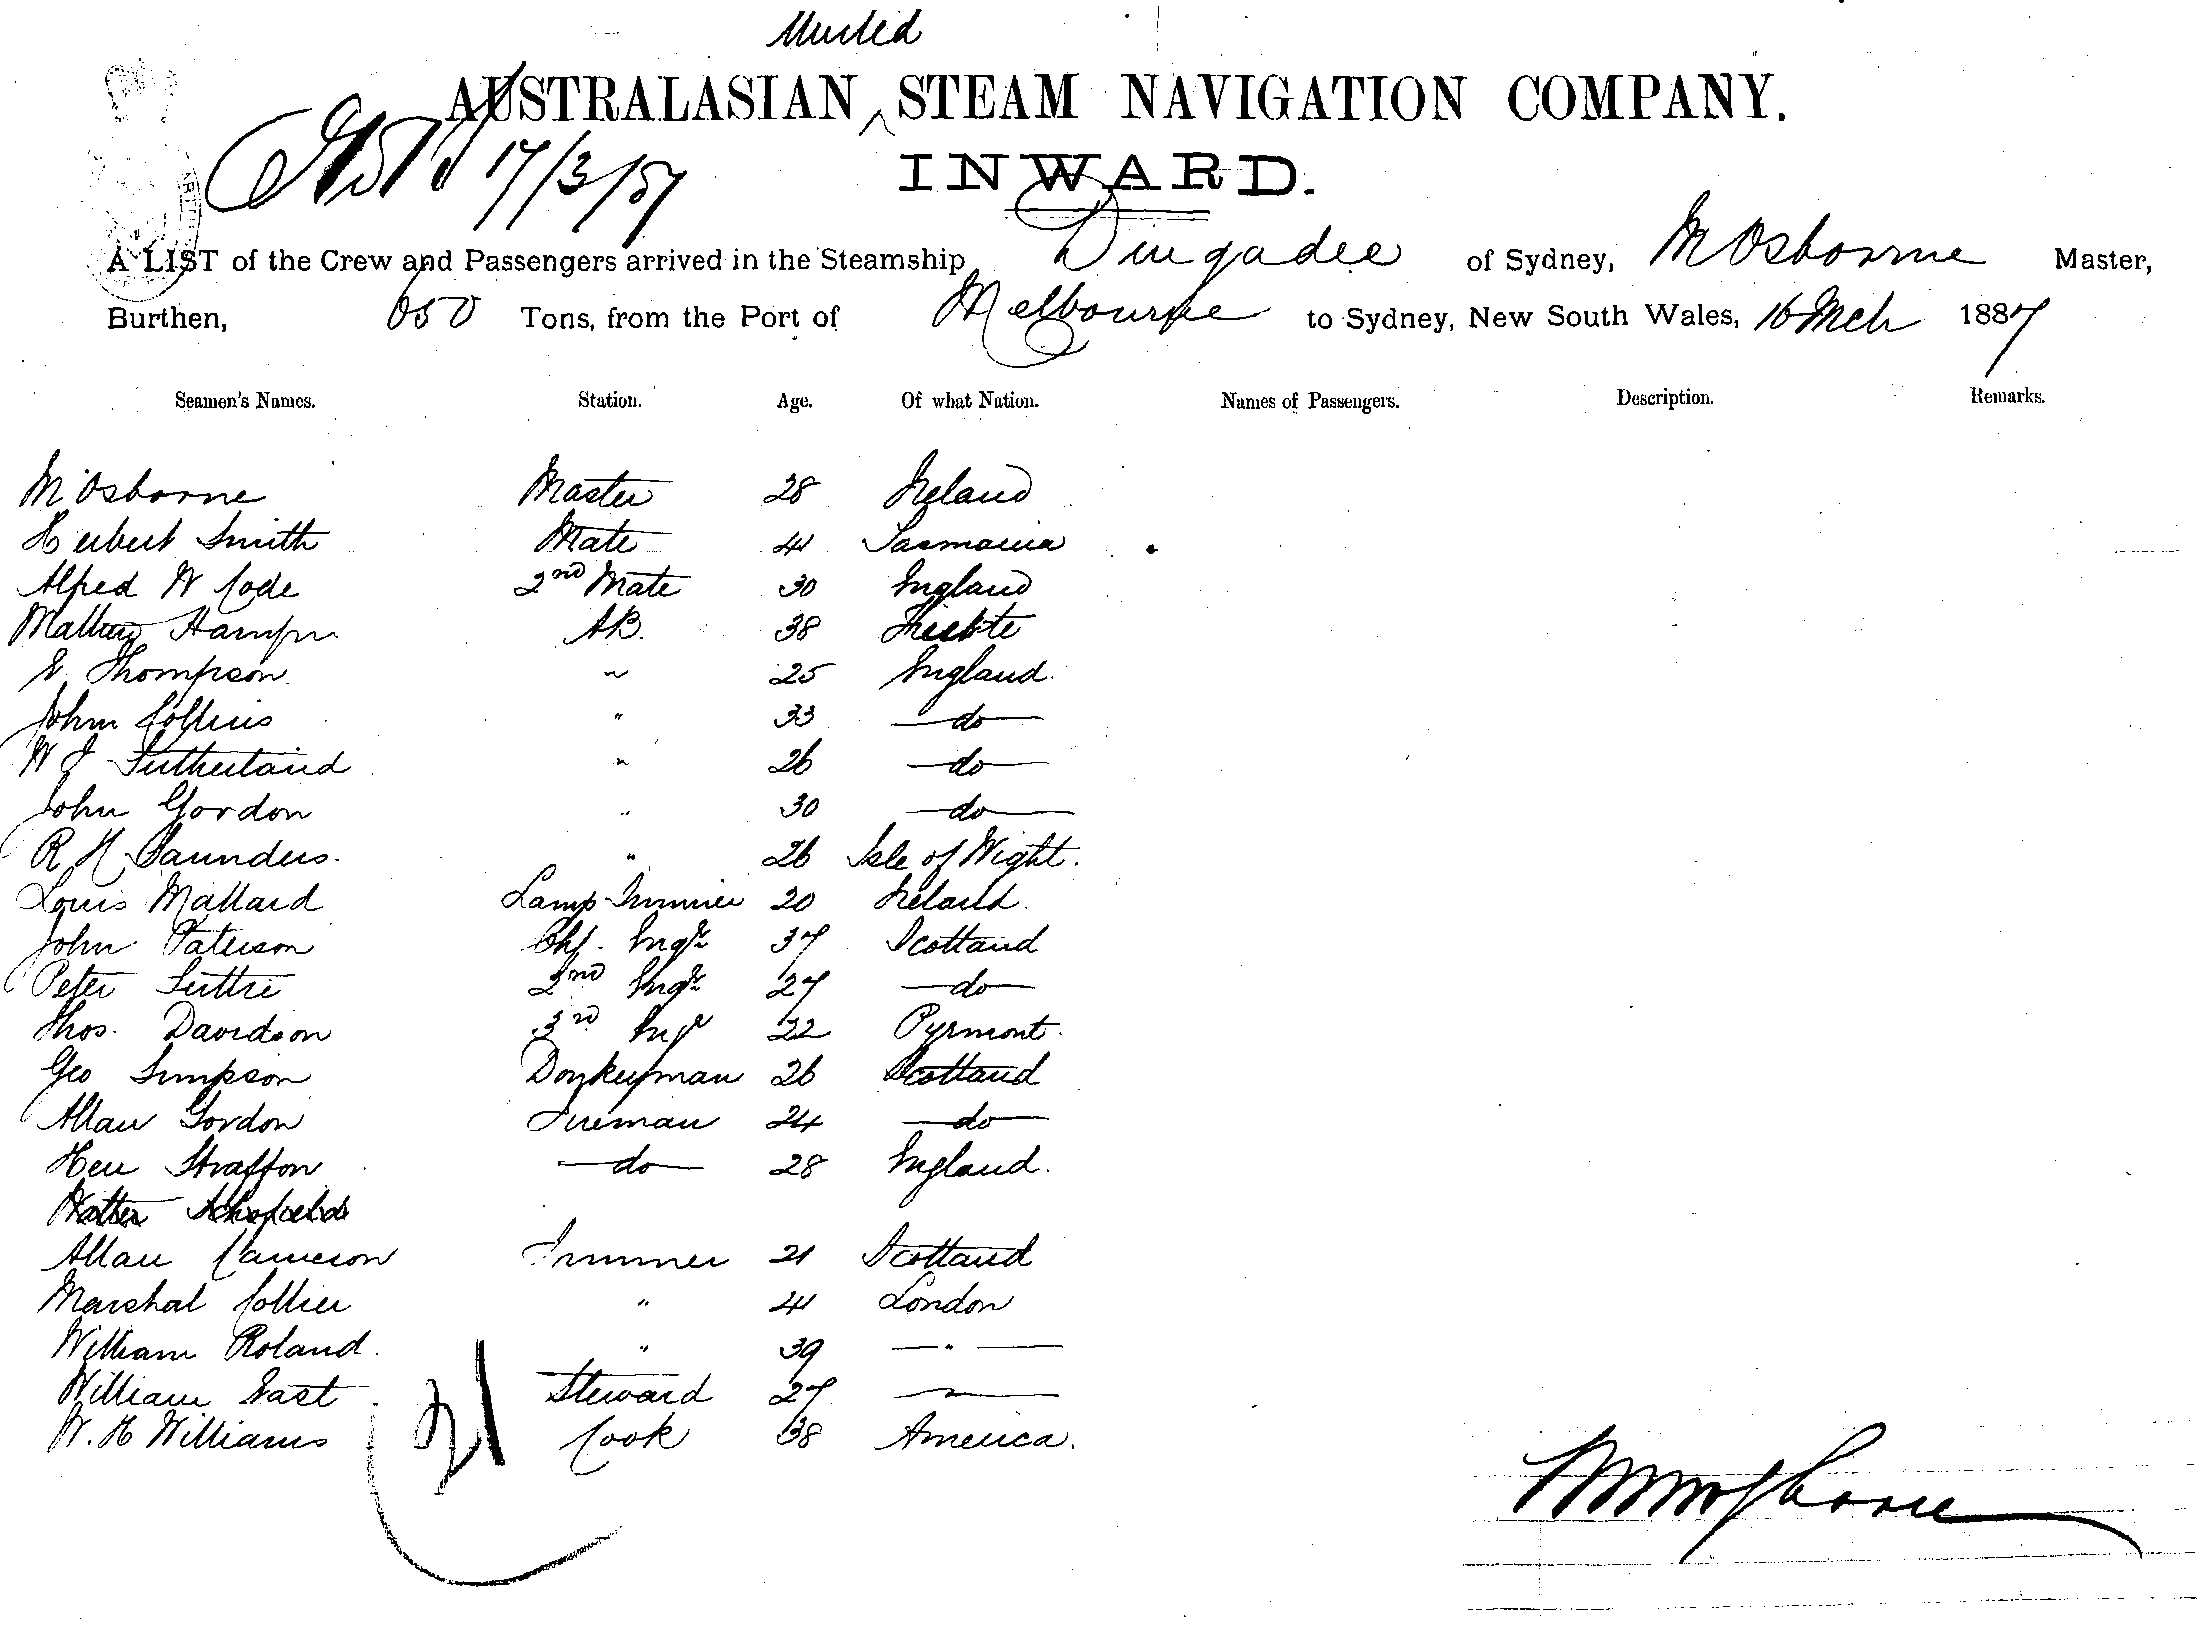 AUSTRALASIAN STEAM NAVIGATION COMPANY.
17/3/87
INWARD.
A LIST of the Crew and Passengers arrived in the Steamship Dingadee of Sydney, M Osborne Master,
Burthen, 650 Tons, from the Port of Melbourne to Sydney, New South Wales, 16 Mch 1887
Seamen's Names. Station. Age. Of what Nation. Names of Passengers. Description. Remarks.
M Osborne Master 28 Ireland
Herbert Smith Mate 41 Tasmania
Alfred W Code 2nd Mate 30 England
AB. 38
E Thompson " 25 England.
John Collins " 33 do
W J Sutherland " 26 do
John Gordon " 30 do
R H Saunders. " 26 Isle of Wight.
Louis Mallard Lamp Trimmer 20 Ireland.
John Paterson Chf. Engr 37 Scotland
Peter Suttie 2nd Engr 27 do
Thos. Davidson 3rd Engr 22 Pyrmont.
Geo Simpson Donkeyman 26 Scotland
Allan Gordon Fireman 24 do
Hen Straffon do 28 England.
Walter Schofield
Allan Cameron Trimmer 21 Scotland
Marshal Collier " 41 London
William Roland. " 39 "
William East Steward 27 "
W. H Williams Cook 38 America.
21